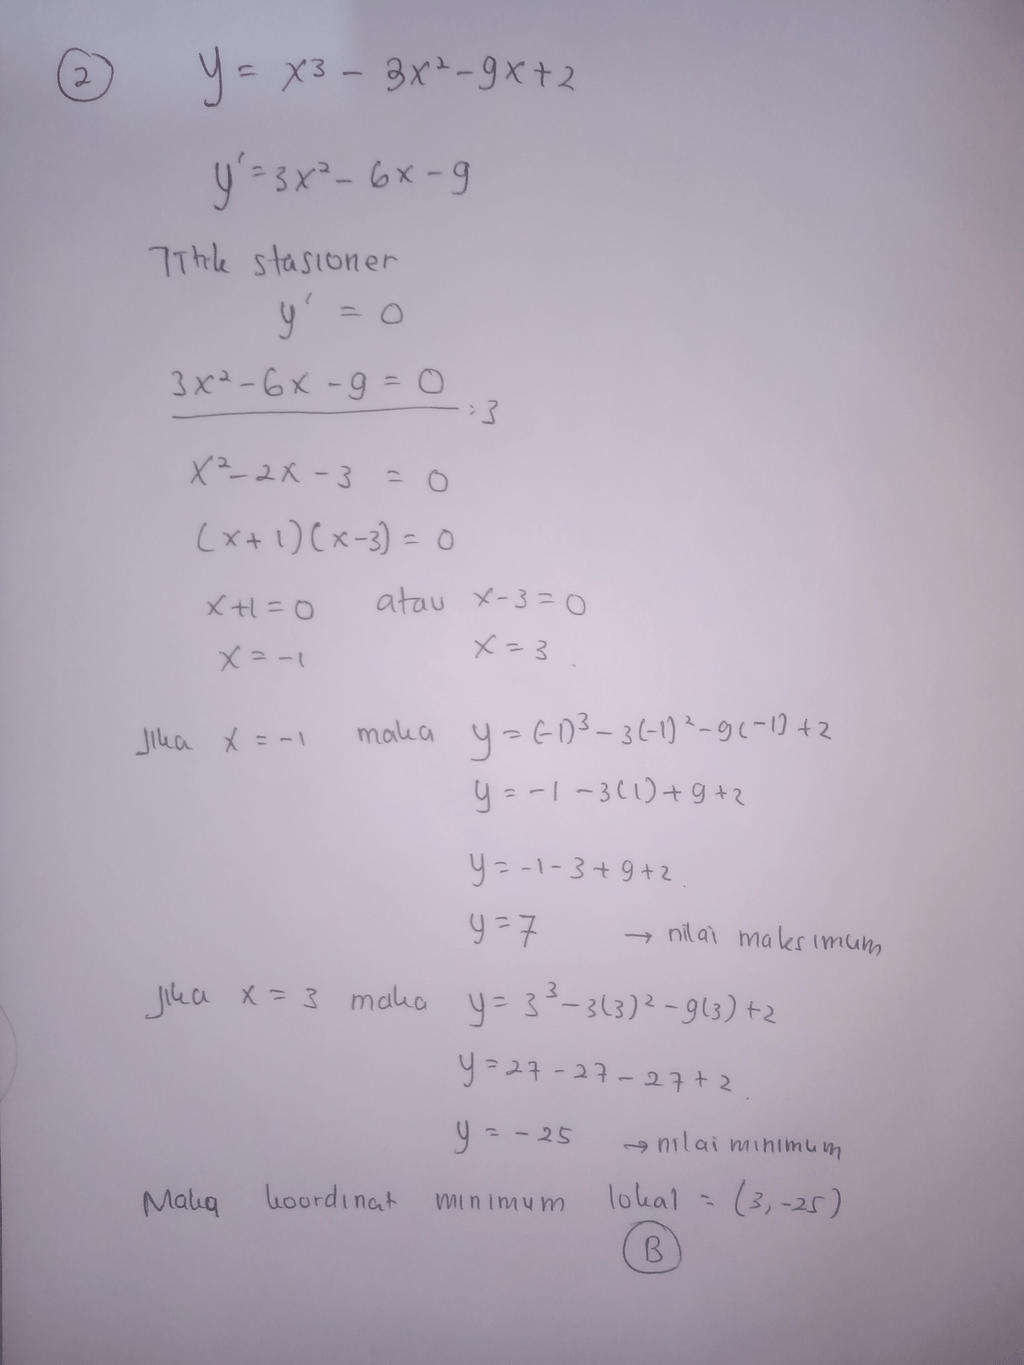 2 y = x³ - 3x² - 9x + 2
y' = 3x² - 6x - 9
Titik stasioner
y' = 0
3x² - 6x - 9 = 0 :3
x² - 2x - 3 = 0
(x + 1)(x - 3) = 0
x + 1 = 0 atau x - 3 = 0
x = -1 x = 3
Jika x = -1 maka y = (-1)³ - 3(-1)² - 9(-1) + 2
y = -1 - 3(1) + 9 + 2
y = -1 - 3 + 9 + 2
y = 7 → nilai maksimum
Jika x = 3 maka y = 3³ - 3(3)² - 9(3) + 2
y = 27 - 27 - 27 + 2
y = -25 → nilai minimum
Maka koordinat minimum lokal = (3, -25)
B